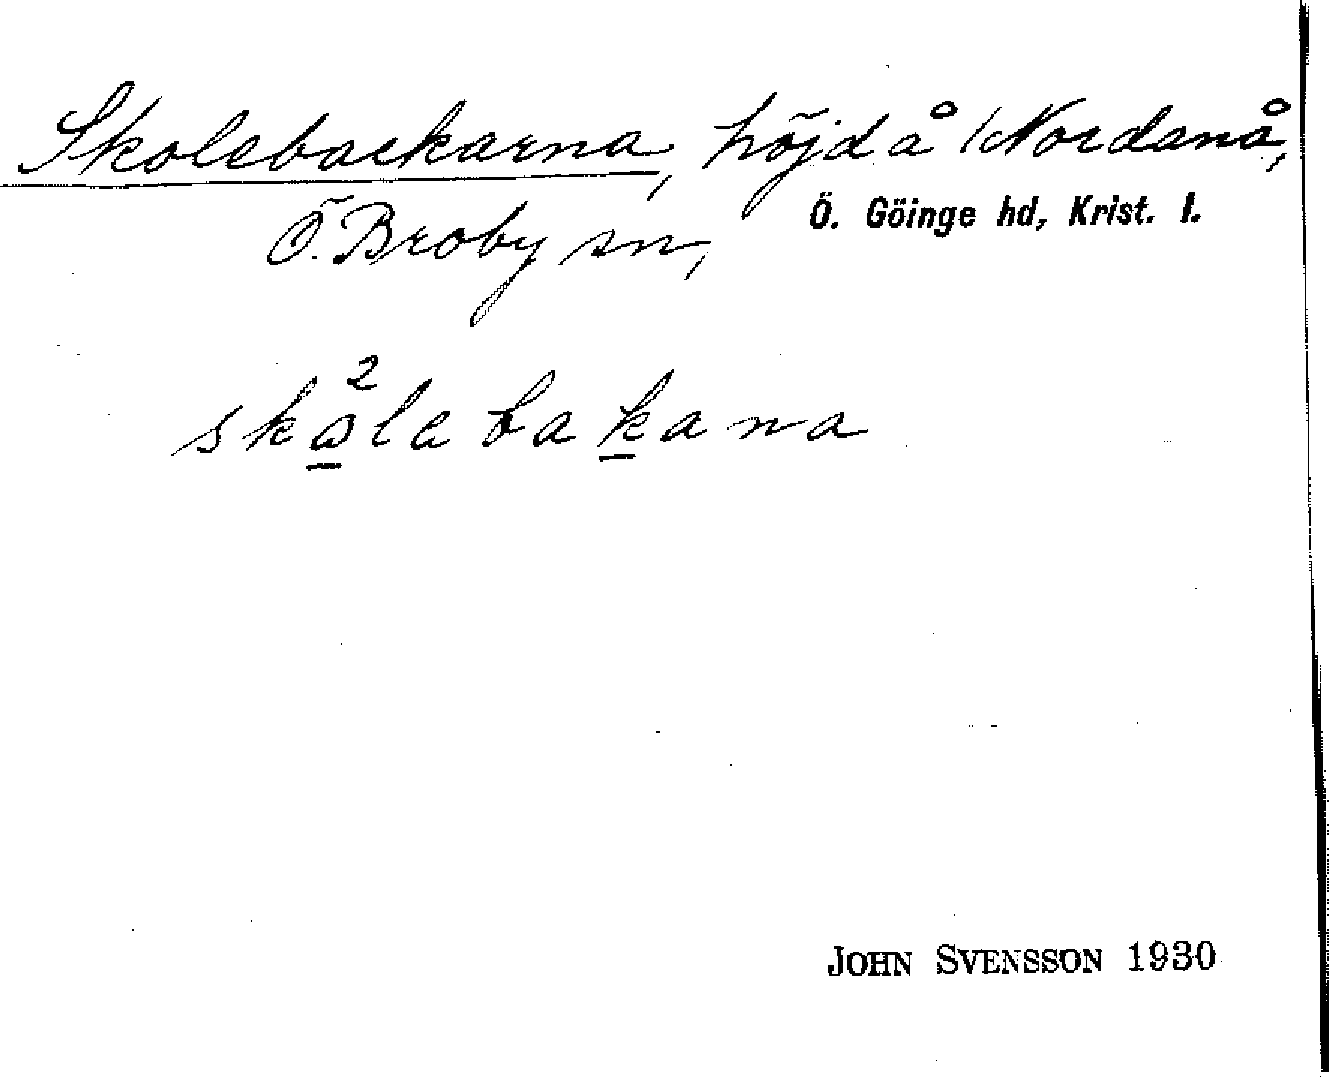 Skolebackarna, höjd å Nordanå,
Ö. Broby sn, Ö. Göinge hd, Krist. l.
2
skɷlebakana
JOHN SVENSSON 1930